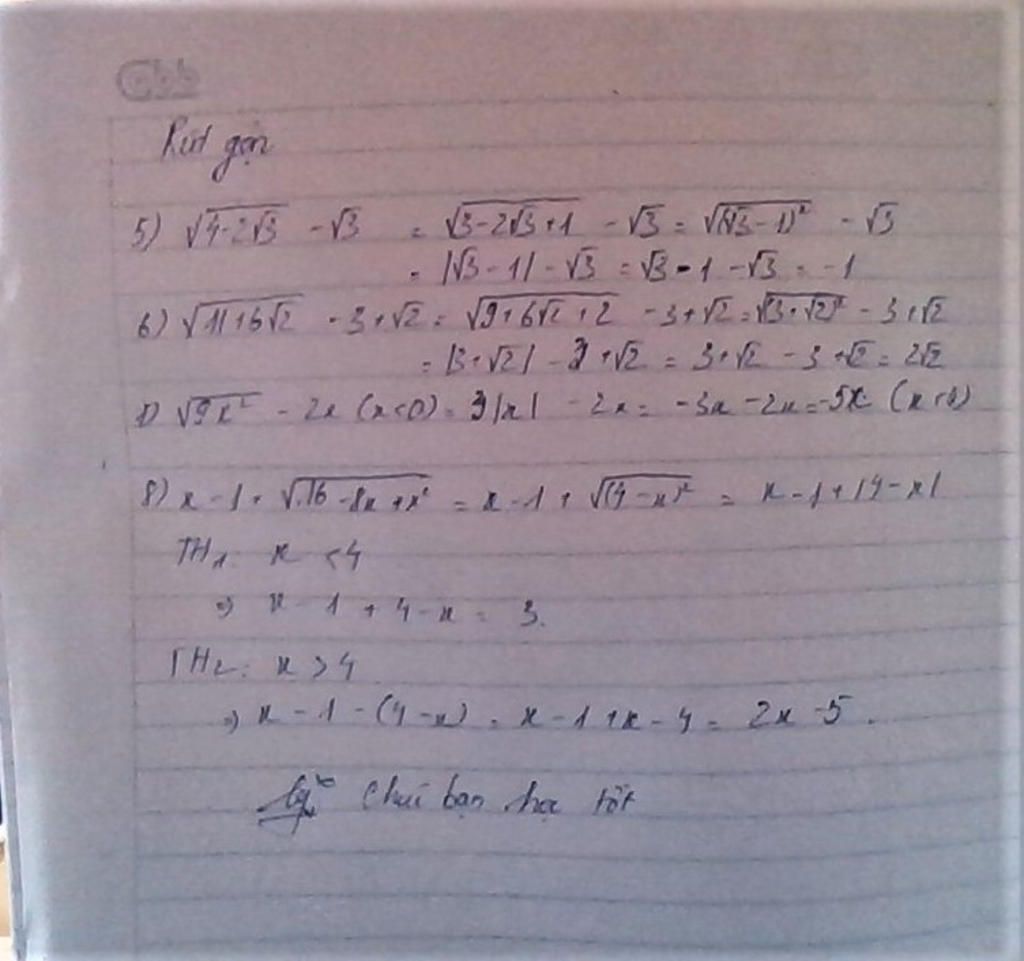 Rút gọn
5) √(4-2√3) - √3 = √(3-2√3+1) - √3 = √((√3-1)²) - √3
= |√3-1| - √3 = √3-1-√3 = -1
6) √(11+6√2) - 3+√2 = √(9+6√2+2) - 3+√2 = √((3+√2)²) - 3+√2
= |3+√2| - 3+√2 = 3+√2 - 3+√2 = 2√2
√(9x²) - 2x (x<0) = 3|x| - 2x = -3x - 2x = -5x (x<0)
8) x-1+√(16-8x+x²) = x-1+√((4-x)²) = x-1+|4-x|
TH1: x < 4
=> x-1+4-x = 3.
TH2: x > 4
=> x-1-(4-x) = x-1+x-4 = 2x-5.
Chúc bạn học tốt